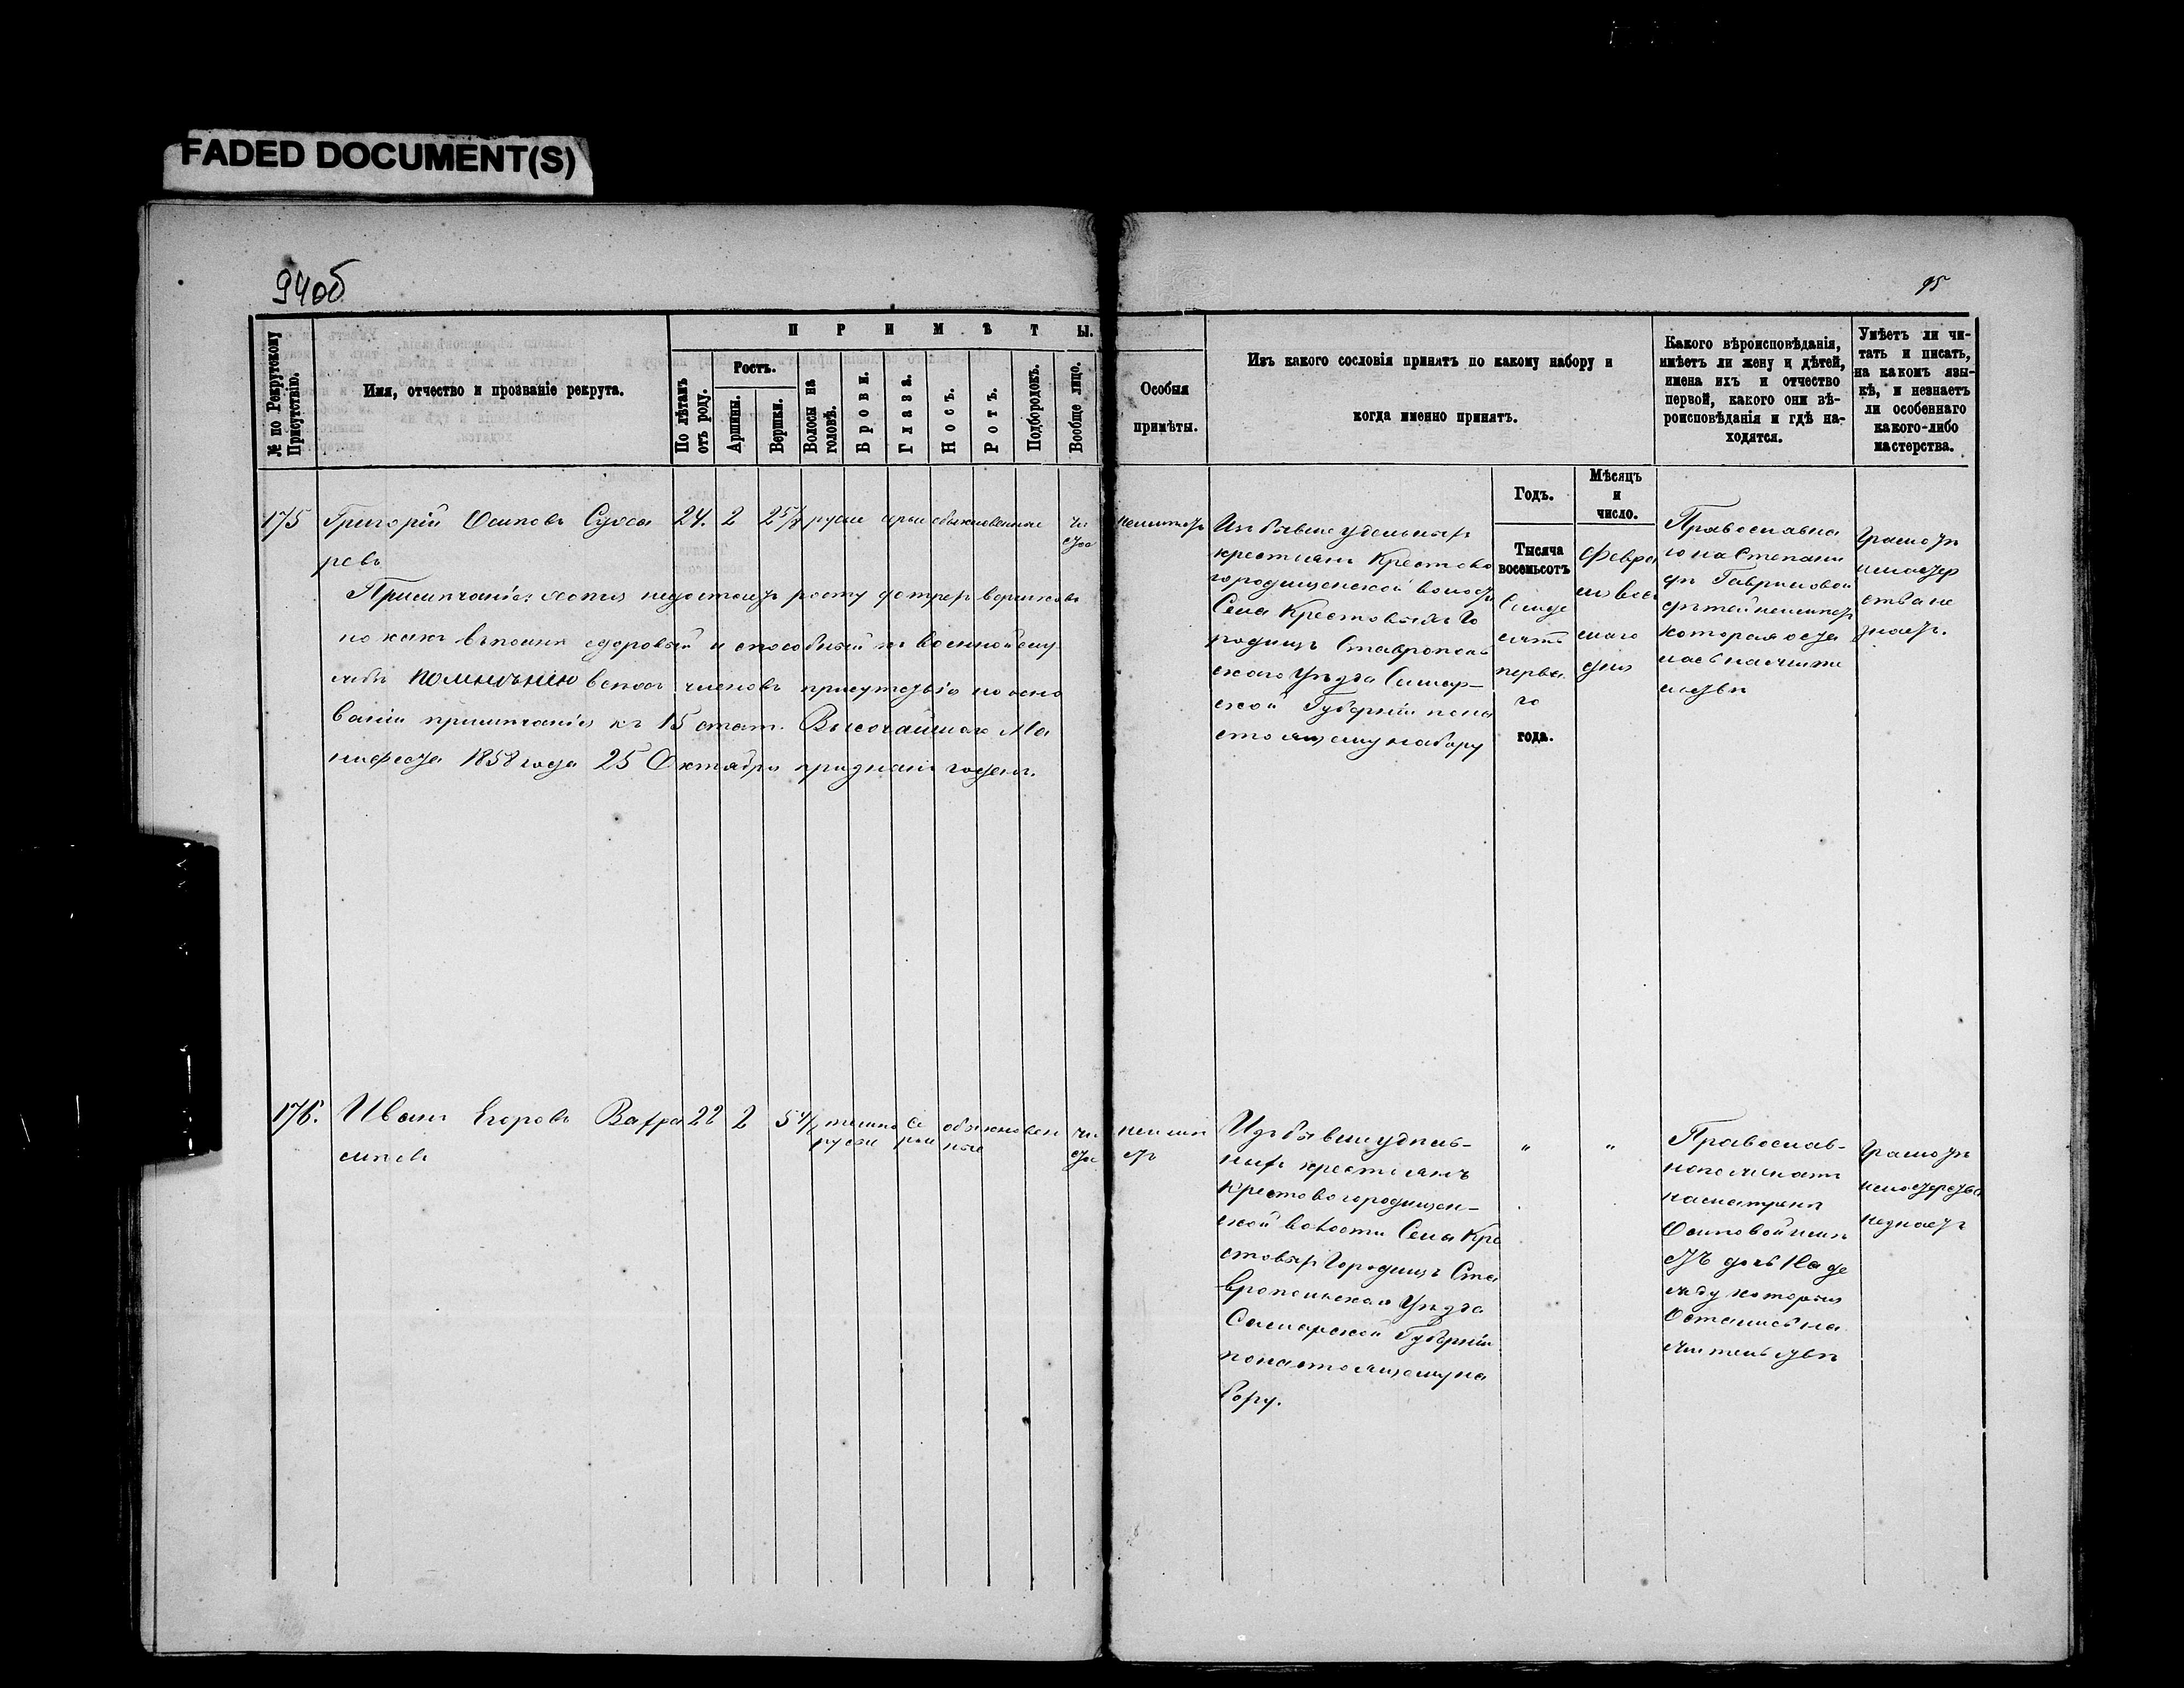 FADED DOCUMENT(S)
94об
95
№ по Рекрутскому Присутствію.
Имя, отчество и прозваніе рекрута.
ПРИМѢТЫ.
По лѣтамъ отъ роду.
Ростъ.
Аршины.
Вершки.
Волосы на головѣ.
Брови.
Глаза.
Носъ.
Ротъ.
Подбородокъ.
Вообще лицо.
Особыя
примѣты.
Изъ какого сословія принятъ по какому набору и
когда именно принятъ.
Какого вѣроисповѣданія,
имѣетъ ли жену и дѣтей,
имена ихъ и отчество
первой, какого они вѣ-
роисповѣданія и гдѣ на-
ходятся.
Умѣетъ ли чи-
тать и писать,
на какомъ язы-
кѣ, и незнаетъ
ли особеннаго
какого-либо
мастерства.
Годъ.
Мѣсяцъ
и
число.
175 Григорій Осиповъ Суха 24. 2 2 5/8 русые серые обыкновенные чи
ревъ
стое
Примѣчаніе: хотя недостаетъ росту
но какъ вполнѣ здоровый и способный къ военной слу
жбѣ по мнѣнію всехъ членовъ присутствія по осно
ваніи примѣчанія къ 15 стат. Высочайшаго Ма
нифеста 1858 года 25 Октября признанъ годенъ.
неимѣетъ
Изъ бывше удельныхъ
крестьянъ Крестово
городищенской волости
Села Крестовыхъ Го
родищъ Ставрополь
скаго Уѣзда Самар-
ской Губерніи пона
стоящему набору
Тысяча
восемьсотъ
Семьде
сятъ
перва
го
года.
Февра
ля вос
маго
дня
Православна
го на Степани
дѣ Гавриловой
дѣтей неимѣетъ
которая оста
лась на жите
льствѣ
Грамотѣ
и мастер
ства не
знаетъ.
176. Иванъ Егоровъ Вахра 22 2 5 4/8 темно се обыкновен чи
мѣевъ
русые рые ные
стое
неимѣ
етъ
Изъ бывше удель-
ныхъ крестьянъ
Крестовогородищен-
ской волости Села Кре
стовыхъ Городищъ Ста
вропольскаго Уѣзда
Самарской Губерніи
понастоящему на
бору.
"
"
Православ-
наго женатъ
на Матренѣ
Осиповой имѣ
етъ дочь Наде
жду которыя
Остались на
жительствѣ
Грамотѣ
и мастерства
незнаетъ